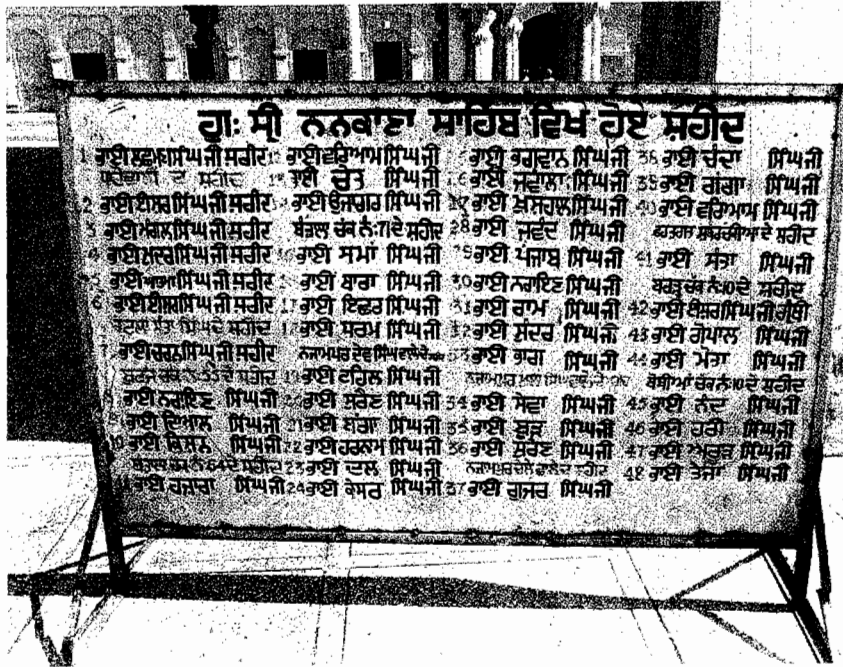 ਗੁ: ਸ੍ਰੀ ਨਨਕਾਣਾ ਸਾਹਿਬ ਵਿਖੇ ਹੋਏ ਸ਼ਹੀਦ
1 ਭਾਈ ਲਛਮਣ ਸਿੰਘ ਜੀ ਸ਼ਹੀਦ
ਦੇ ਸ਼ਹੀਦ
2 ਭਾਈ ਈਸ਼ਰ ਸਿੰਘ ਜੀ ਸ਼ਹੀਦ
3 ਭਾਈ ਮੰਗਲ ਸਿੰਘ ਜੀ ਸ਼ਹੀਦ
4 ਭਾਈ ਸੁੰਦਰ ਸਿੰਘ ਜੀ ਸ਼ਹੀਦ
5 ਭਾਈ ਆਤਮਾ ਸਿੰਘ ਜੀ ਸ਼ਹੀਦ
6 ਭਾਈ ਈਸ਼ਰ ਸਿੰਘ ਜੀ ਸ਼ਹੀਦ
ਦੇ ਸ਼ਹੀਦ
7 ਭਾਈ ਚਰਨ ਸਿੰਘ ਜੀ ਸ਼ਹੀਦ
ਦੇ ਸ਼ਹੀਦ
8 ਭਾਈ ਨਰਾਇਣ ਸਿੰਘ ਜੀ
9 ਭਾਈ ਦਿਆਲ ਸਿੰਘ ਜੀ
10 ਭਾਈ ਕਿਸ਼ਨ ਸਿੰਘ ਜੀ
ਚੱਕ ਨੰ: 64 ਦੇ ਸ਼ਹੀਦ
11 ਭਾਈ ਹਜ਼ਾਰਾ ਸਿੰਘ ਜੀ
12 ਭਾਈ ਵਰਿਆਮ ਸਿੰਘ ਜੀ
13 ਭਾਈ ਚੇਤ ਸਿੰਘ ਜੀ
14 ਭਾਈ ਉਜਾਗਰ ਸਿੰਘ ਜੀ
ਬੰਡਾਲਾ ਚੱਕ ਨੰ: 71 ਦੇ ਸ਼ਹੀਦ
ਭਾਈ ਸਮਾ ਸਿੰਘ ਜੀ
ਭਾਈ ਬਾਰਾ ਸਿੰਘ ਜੀ
17 ਭਾਈ ਇਛਰ ਸਿੰਘ ਜੀ
18 ਭਾਈ ਧਰਮ ਸਿੰਘ ਜੀ
ਨਜਾਮਪੁਰ ਦੇਵਾ ਸਿੰਘ ਵਾਲੇ ਦੇ
19 ਭਾਈ ਟਹਿਲ ਸਿੰਘ ਜੀ
20 ਭਾਈ ਸਰੈਣ ਸਿੰਘ ਜੀ
21 ਭਾਈ ਬੰਗਾ ਸਿੰਘ ਜੀ
22 ਭਾਈ ਹਰਨਾਮ ਸਿੰਘ ਜੀ
23 ਭਾਈ ਦਲ ਸਿੰਘ ਜੀ
24 ਭਾਈ ਕੇਸਰ ਸਿੰਘ ਜੀ
ਭਾਈ ਭਗਵਾਨ ਸਿੰਘ ਜੀ
ਭਾਈ ਜਵਾਲਾ ਸਿੰਘ ਜੀ
27 ਭਾਈ ਖੁਸ਼ਹਾਲ ਸਿੰਘ ਜੀ
28 ਭਾਈ ਜਵੰਦ ਸਿੰਘ ਜੀ
29 ਭਾਈ ਪੰਜਾਬ ਸਿੰਘ ਜੀ
30 ਭਾਈ ਨਰਾਇਣ ਸਿੰਘ ਜੀ
31 ਭਾਈ ਰਾਮ ਸਿੰਘ ਜੀ
32 ਭਾਈ ਸੁੰਦਰ ਸਿੰਘ ਜੀ
33 ਭਾਈ ਭਾਗ ਸਿੰਘ ਜੀ
ਨਜਾਮਪੁਰ
34 ਭਾਈ ਸੇਵਾ ਸਿੰਘ ਜੀ
35 ਭਾਈ ਬੂੜ ਸਿੰਘ ਜੀ
36 ਭਾਈ ਸਰੈਣ ਸਿੰਘ ਜੀ
ਨਜਾਮਪੁਰ ਚੇਲੇ ਵਾਲੇ ਦੇ ਸ਼ਹੀਦ
37 ਭਾਈ ਗੁਜਰ ਸਿੰਘ ਜੀ
38 ਭਾਈ ਚੰਦਾ ਸਿੰਘ ਜੀ
39 ਭਾਈ ਗੰਗਾ ਸਿੰਘ ਜੀ
40 ਭਾਈ ਵਰਿਆਮ ਸਿੰਘ ਜੀ
ਦੇ ਸ਼ਹੀਦ
41 ਭਾਈ ਸੰਤਾ ਸਿੰਘ ਜੀ
ਚੱਕ ਨੰ: 10 ਦੇ ਸ਼ਹੀਦ
42 ਭਾਈ ਈਸ਼ਰ ਸਿੰਘ ਜੀ ਗ੍ਰੰਥੀ
43 ਭਾਈ ਗੋਪਾਲ ਸਿੰਘ ਜੀ
44 ਭਾਈ ਮੋਤਾ ਸਿੰਘ ਜੀ
ਬੋਸੀਆਂ ਚੱਕ ਨੰ: 10 ਦੇ ਸ਼ਹੀਦ
45 ਭਾਈ ਨੰਦ ਸਿੰਘ ਜੀ
46 ਭਾਈ ਹਰੀ ਸਿੰਘ ਜੀ
47 ਭਾਈ ਅਰੂੜ ਸਿੰਘ ਜੀ
48 ਭਾਈ ਤੇਜਾ ਸਿੰਘ ਜੀ